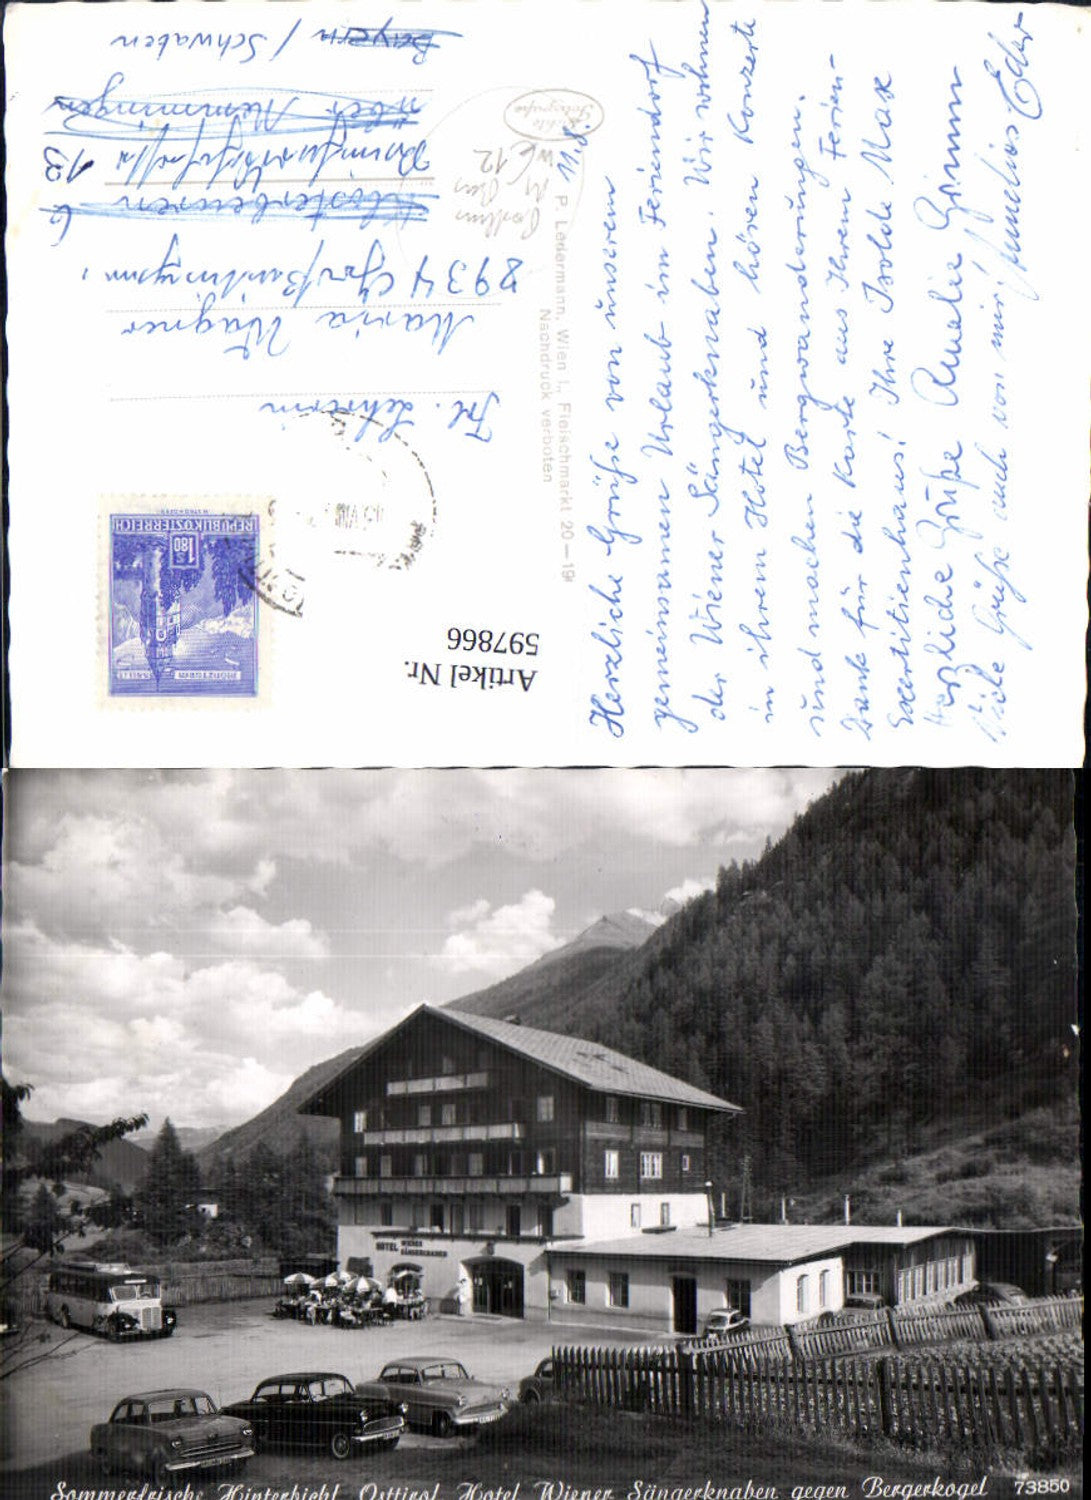 11.8.
Herzliche Grüße von unserem
gemeinsamen Urlaub im Feriendorf
der Wiener Sängerknaben. Wir wohnen
in ihrem Hotel und hören Konzerte
und machen Bergwanderungen.
Dank für die Karte aus Ihrem Ferien-
Exerzitienhaus! Ihre Isolde Max
Herzliche Grüße Amalie Grimm
Viele Grüße auch von mir! Eder
P. Ledermann, Wien I., Fleischmarkt 20-19
Nachdruck verboten
Echte
Fotografie
Frl. Lehrerin
Maria Wagner
8934 Großaitingen
Klosterbeuren 6
13
über Memmingen
Bayern / Schwaben
W 12
REPUBLIK ÖSTERREICH
S 1.80
MÜNZTURM HALL I. T.
Artikel Nr.
597866
HOTEL WIENER
SÄNGERKNABEN
Sommerfrische Hinterbichl Osttirol Hotel Wiener Sängerknaben gegen Bergerkogel 73850